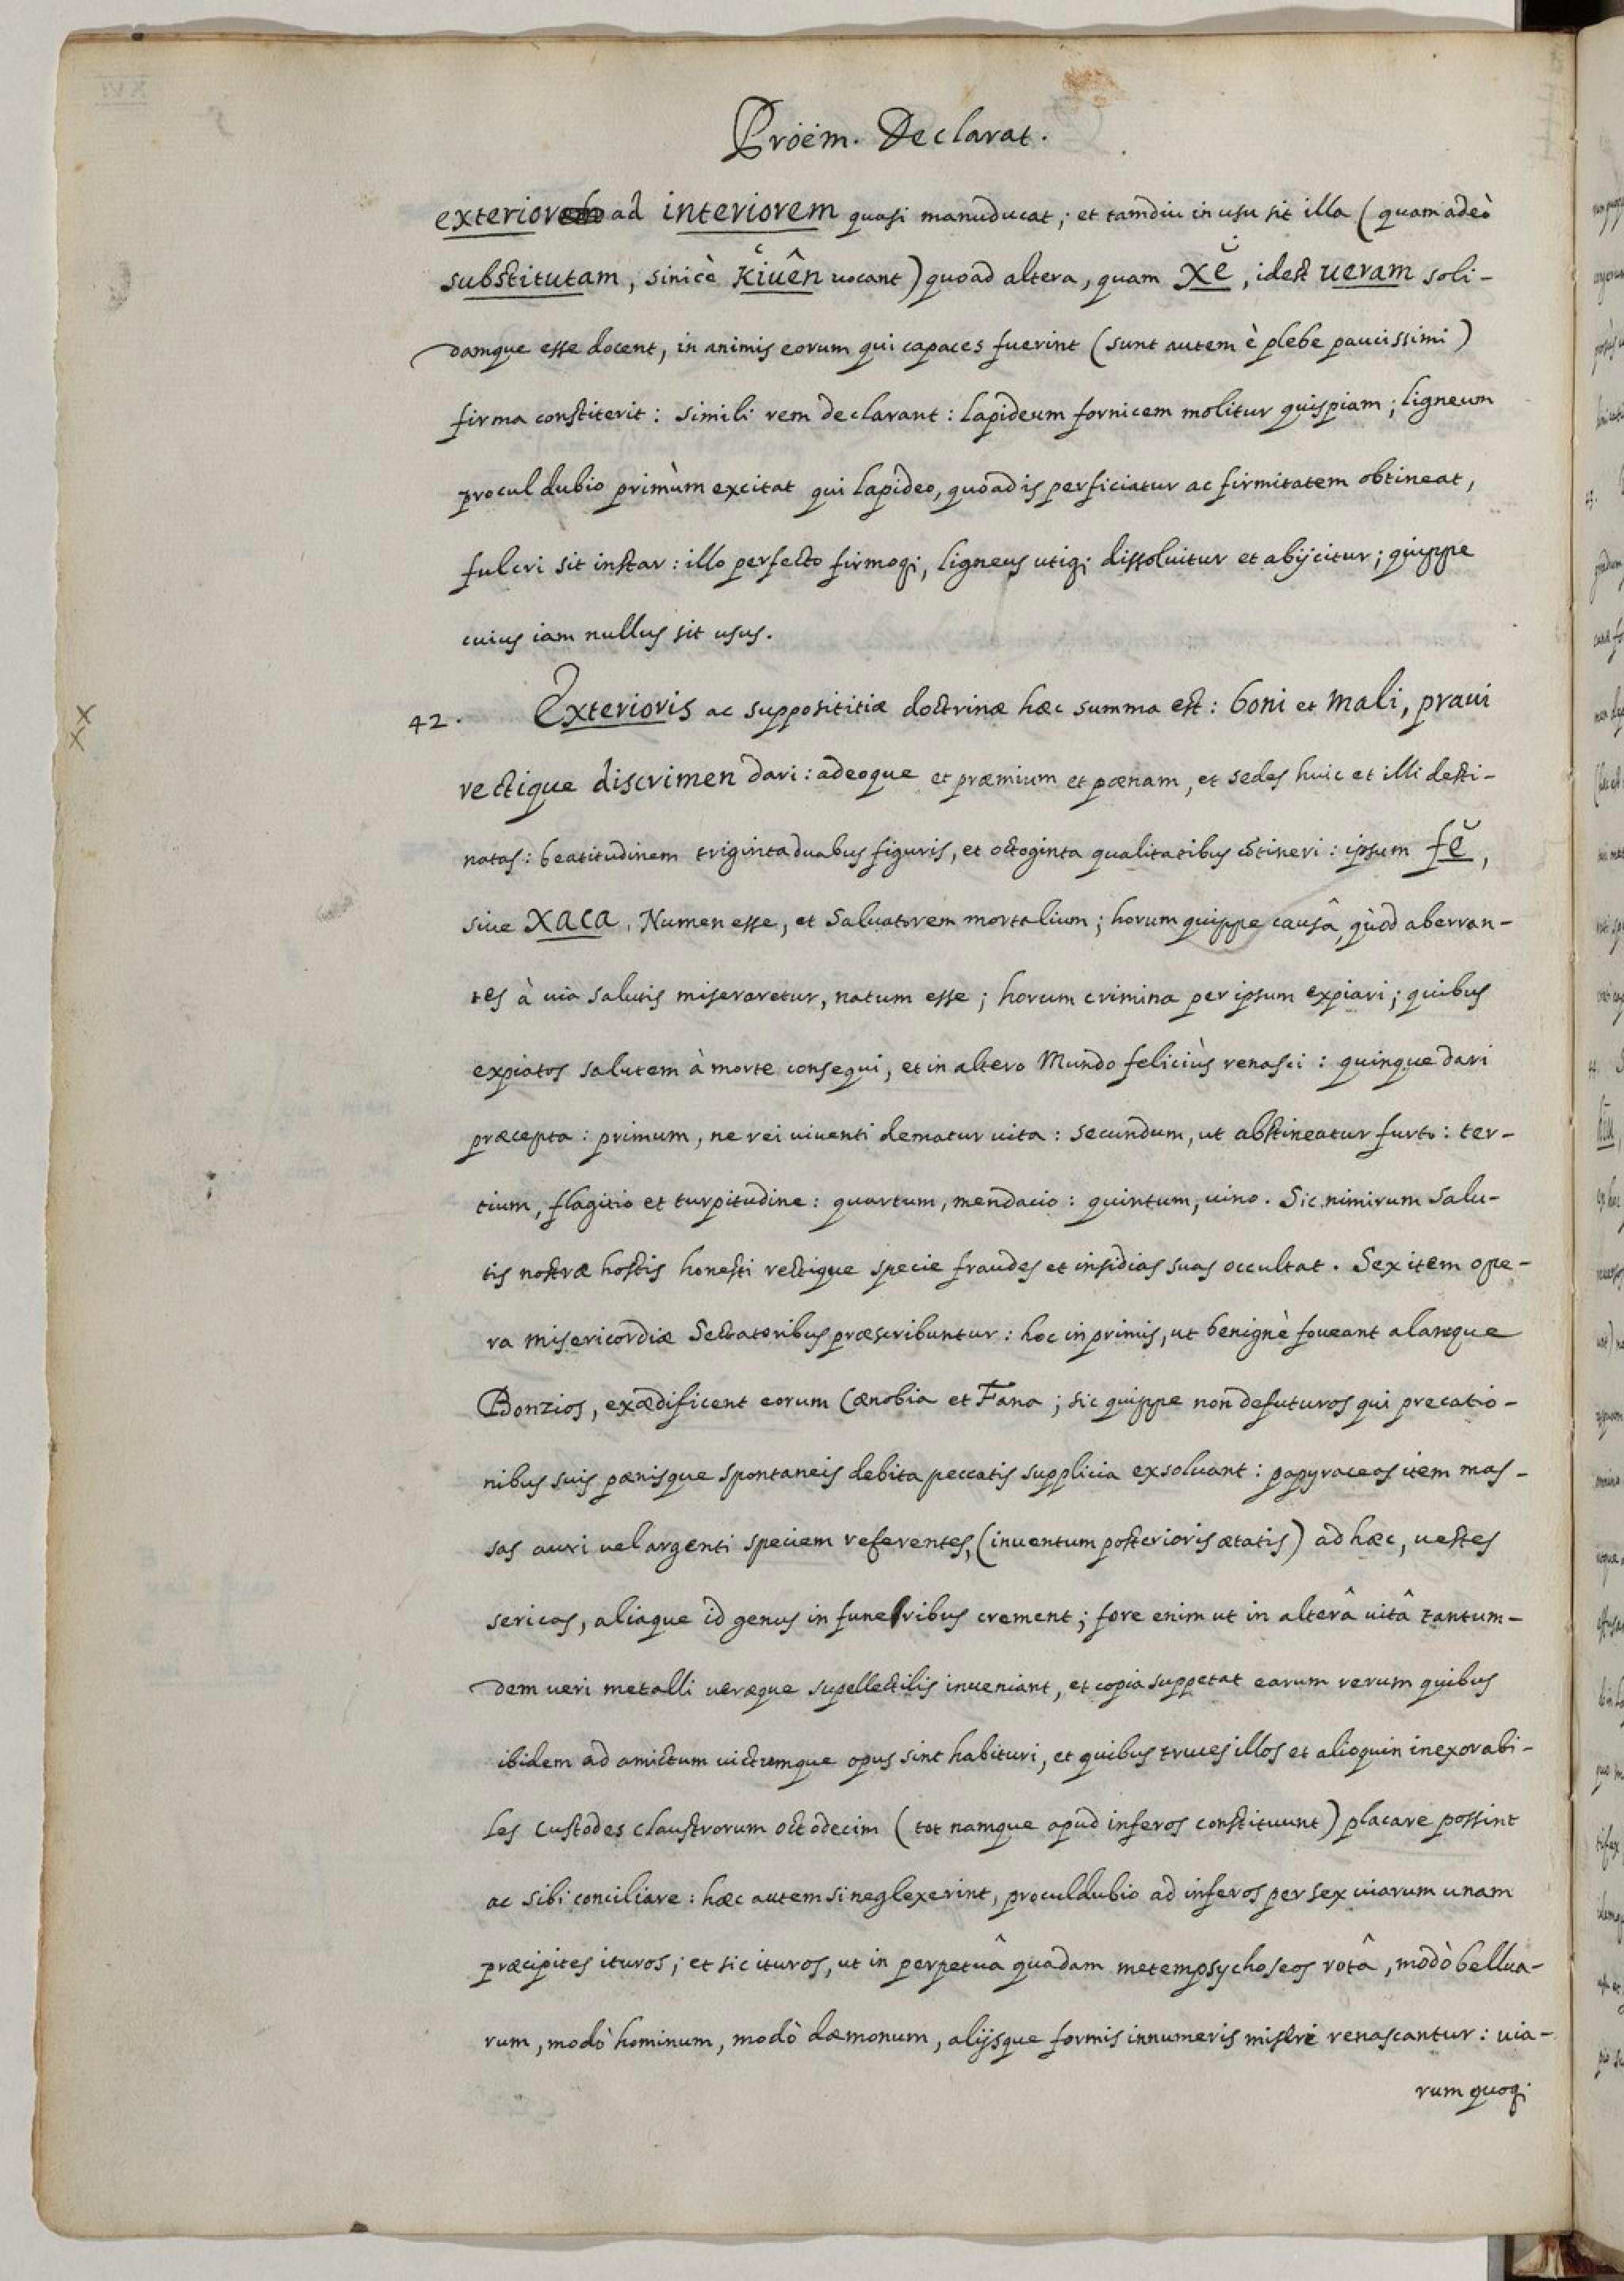 Proëm. Declarat.
exterior ad interiorem quasi manuducat; et tamdiu in usu sit illa (quam adeò
substitutam, sinicè Kiuên uocant) quoad altera, quam Xĕ, idest ueram soli-
damque esse docent, in animis eorum qui capaces fuerint (sunt autem è plebe paucissimi)
firma constiterit: simili rem declarant: lapideum fornicem molitur quispiam; ligneum
procul dubio primùm excitat qui lapideo, quoad is perficiatur ac firmitatem obtineat,
fulcri sit instar: illo perfecto firmoqꝫ, ligneus utiqꝫ dissoluitur et abijcitur; quippe
cuius iam nullus sit usus.
42. Exterioris ac supposititiæ doctrinæ hæc summa est: boni et mali, praui
rectique discrimen dari: adeoque et præmium et pœnam, et sedes huic et illi desti-
natas: beatitudinem trigintaduabus figuris, et octoginta qualitatibus cōtineri: ipsum fĕ,
siue Xaca, Numen esse, et Saluatorem mortalium; horum quippe causâ, quòd aberran-
tes à uia salutis miseraretur, natum esse; horum crimina per ipsum expiari; quibus
expiatos salutem à morte consequi, et in altero Mundo feliciùs renasci: quinque dari
præcepta: primum, ne rei uiuenti dematur uita: secundum, ut abstineatur furto: ter-
tium, flagitio et turpitudine: quartum, mendacio: quintum, uino. Sic nimirum salu-
tis nostræ hostis honesti rectique specie fraudes et insidias suas occultat. Sex item ope-
ra misericordiæ Sectatoribus præscribuntur: hoc inprimis, ut benignè foueant alantque
Bonzios, exædificent eorum Cœnobia et Fana; sic quippe non defuturos qui precatio-
nibus suis pœnisque spontaneis debita peccatis supplicia exsoluant: papyraceas item mas-
sas auri uel argenti speciem referentes, (inuentum posterioris ætatis) ad hæc, uestes
sericas, aliaque id genus in funeribus crement; fore enim ut in alterâ uitâ tantum-
dem ueri metalli ueræque supellectilis inueniant, et copia suppetat earum rerum quibus
ibidem ad amictum uictumque opus sint habituri, et quibus truces illos et alioquin inexorabi-
les custodes claustrorum octodecim (tot namque apud inferos constituunt) placare possint
ac sibi conciliare: hæc autem si neglexerint, proculdubio ad inferos per sex uiarum unam
præcipites ituros; et sic ituros, ut in perpetuâ quadam metempsychoseos rotâ, modò bellua-
rum, modò hominum, modò dæmonum, alijsque formis innumeris miserè renascantur: uia-
rum quoqꝫ